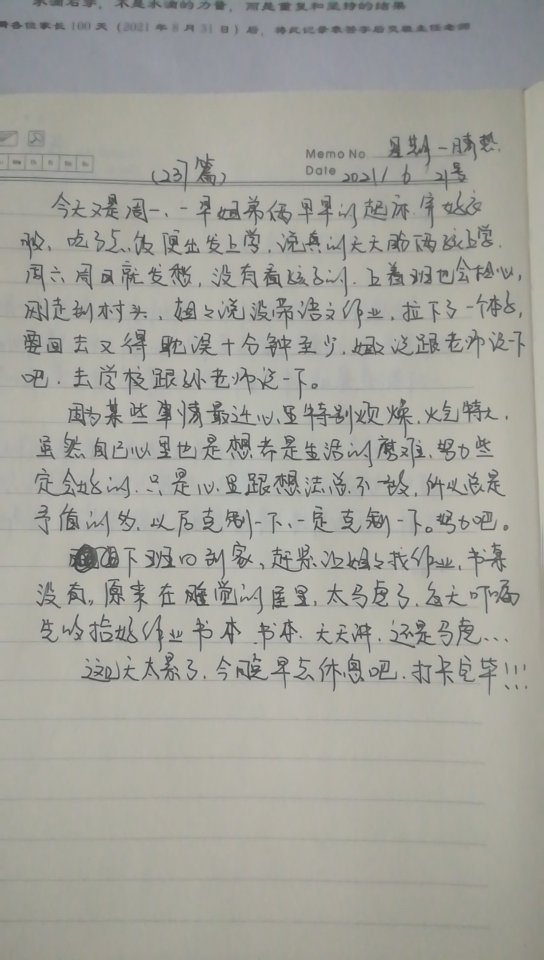 水滴石穿，不是水滴的力量，而是重复和坚持的结果
各位家长100天（2021年8月31日）后，将此记录表签字后交班主任老师
Memo No 星期一 晴热
(23)篇 Date 2021/6 21号
今天又是周一、一早姐弟俩早早的起床.穿好衣
服，吃了点饭便出发上学，说真的天天盼两孩上学.
周六周日就发愁，没有看孩子的.上着班也会担心，
刚走到村头，姐姐说没带语文作业，拉下了一个本子，
要回去又得耽误十分钟至少.姐姐说跟老师说一下
吧.去学校跟孙老师说一下。
因为某些事情最近心里特别烦燥.火气特大，
虽然自己心里也是想着是生活的磨难.努力些
定会好的.只是心里跟想法总不一致，所以总是
矛盾的多，以后克制一下、一定克制一下。努力吧。
下班回到家，赶紧让姐姐找作业，书桌
没有。原来在睡觉的屋里，太马虎了，每天叮嘱
先收拾好作业书本.书本.天天讲.还是马虎...
这几天太累了，今晚早点休息吧.打卡完毕!!!